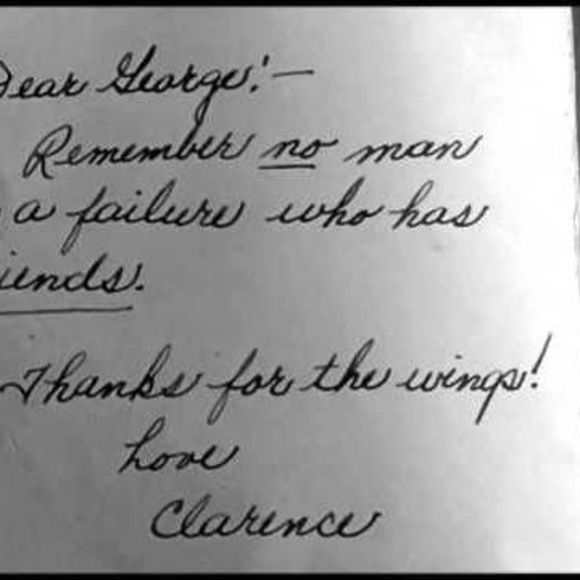 Dear George:—
Remember no man
a failure who has
iends.
Thanks for the wings!
Love
Clarence